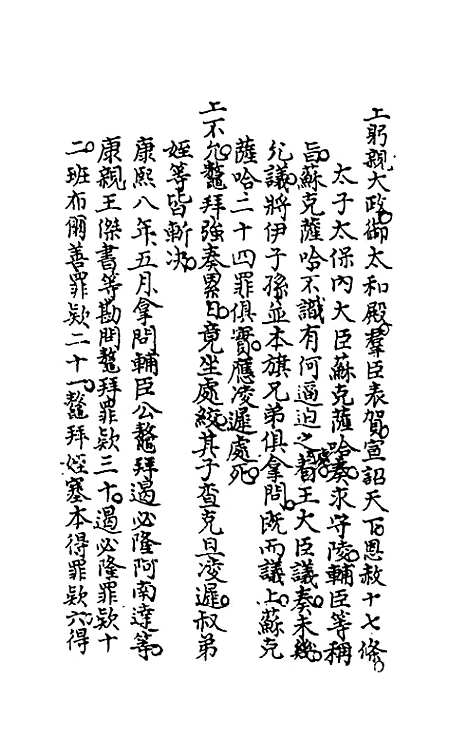 上躬親大政御太和殿羣臣表賀宣詔天下恩赦十七條
太子太保內大臣蘇克薩哈奏求守陵輔臣等稱
旨蘇克薩哈不識有何逼迫之處著王大臣議奏未幾
允議將伊子孫並本旗兄弟俱拿問既而議上蘇克
薩哈二十四罪俱實應凌遲處死
上不允鼇拜強奏累日竟坐處絞其子查克旦凌遲叔弟
姪等皆斬決
康熙八年五月拿問輔臣公鼇拜遏必隆阿南達等
康親王傑書等勘問鼇拜罪欵三十遏必隆罪欵十
二班布爾善罪欵二十一鼇拜姪塞本得罪欵六得